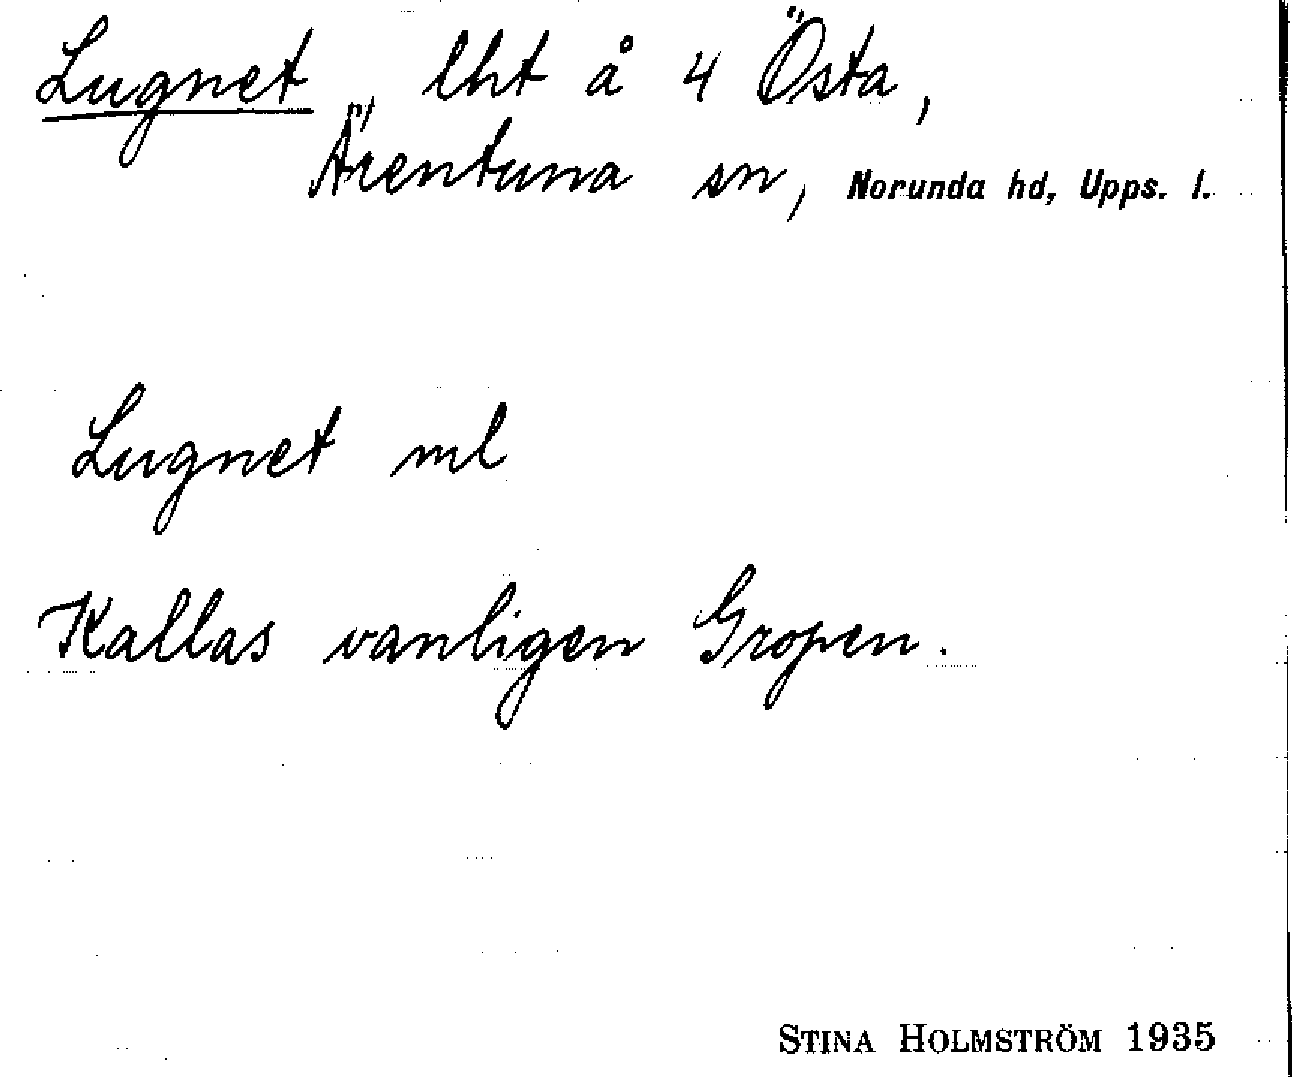 Lugnet, lht å 4 Östa,
Ärentuna sn, Norunda hd, Upps. l.
Lugnet ml
Kallas vanligen Gropen.
STINA HOLMSTRÖM 1935